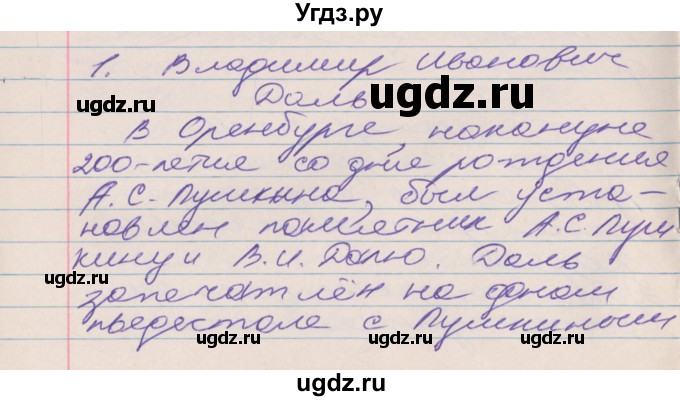 Угдз.ру
1. Владимир Иванович
Даль
В Оренбурге, накануне
200-летия со дня рождения
А.С. Пушкина, был уста-
новлен памятник А.С. Пуш
кину и В.И. Далю. Даль
запечатлён на одном
пьедестале с Пушкиным
ugdz.ru
ugdz.ru
ugdz.ru
ugdz.ru
ugdz.ru
ugdz.ru
ugdz.ru
ugdz.ru
ugdz.ru